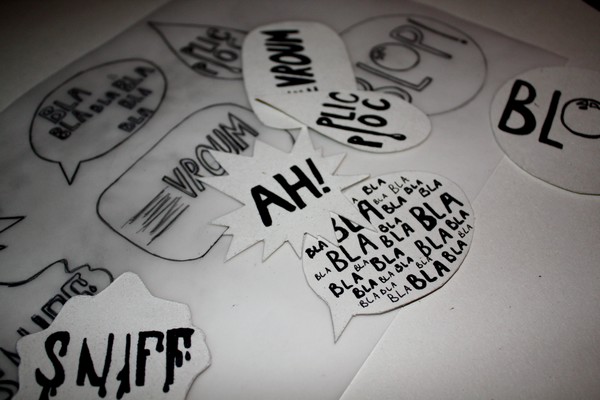 PLIC
POC
VROUM
BLOP!
PLIC
PLOC
BLO
BLA
BLA BLA BLA
BLA BLA
BLA
VROUM
AH!
BLA
BLA BLA BLA
BLA BLA BLA BLA
BLA BLA BLA BLA
BLA BLA BLA BLA
BLA BLA BLA BLA
BLA BLA BLA BLA
SNIFF